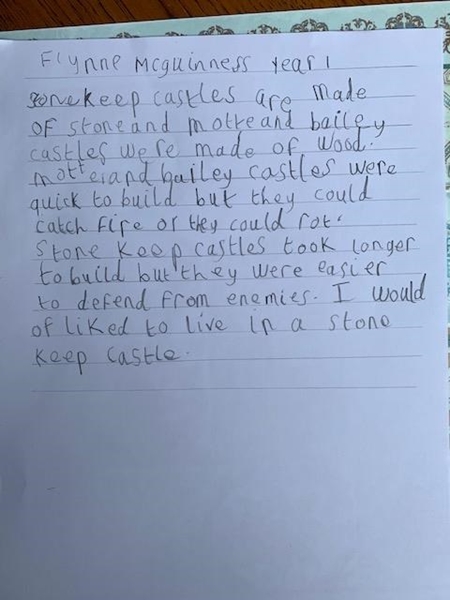 Flynne Mcguinness Year 1
stone keep castles are made
of stone and motte and bailey
castles were made of wood.
motte and bailey castles were
quick to build but they could
catch fire or they could rot.
Stone keep castles took longer
to build but they were easier
to defend from enemies. I would
of liked to live in a stone
keep castle.